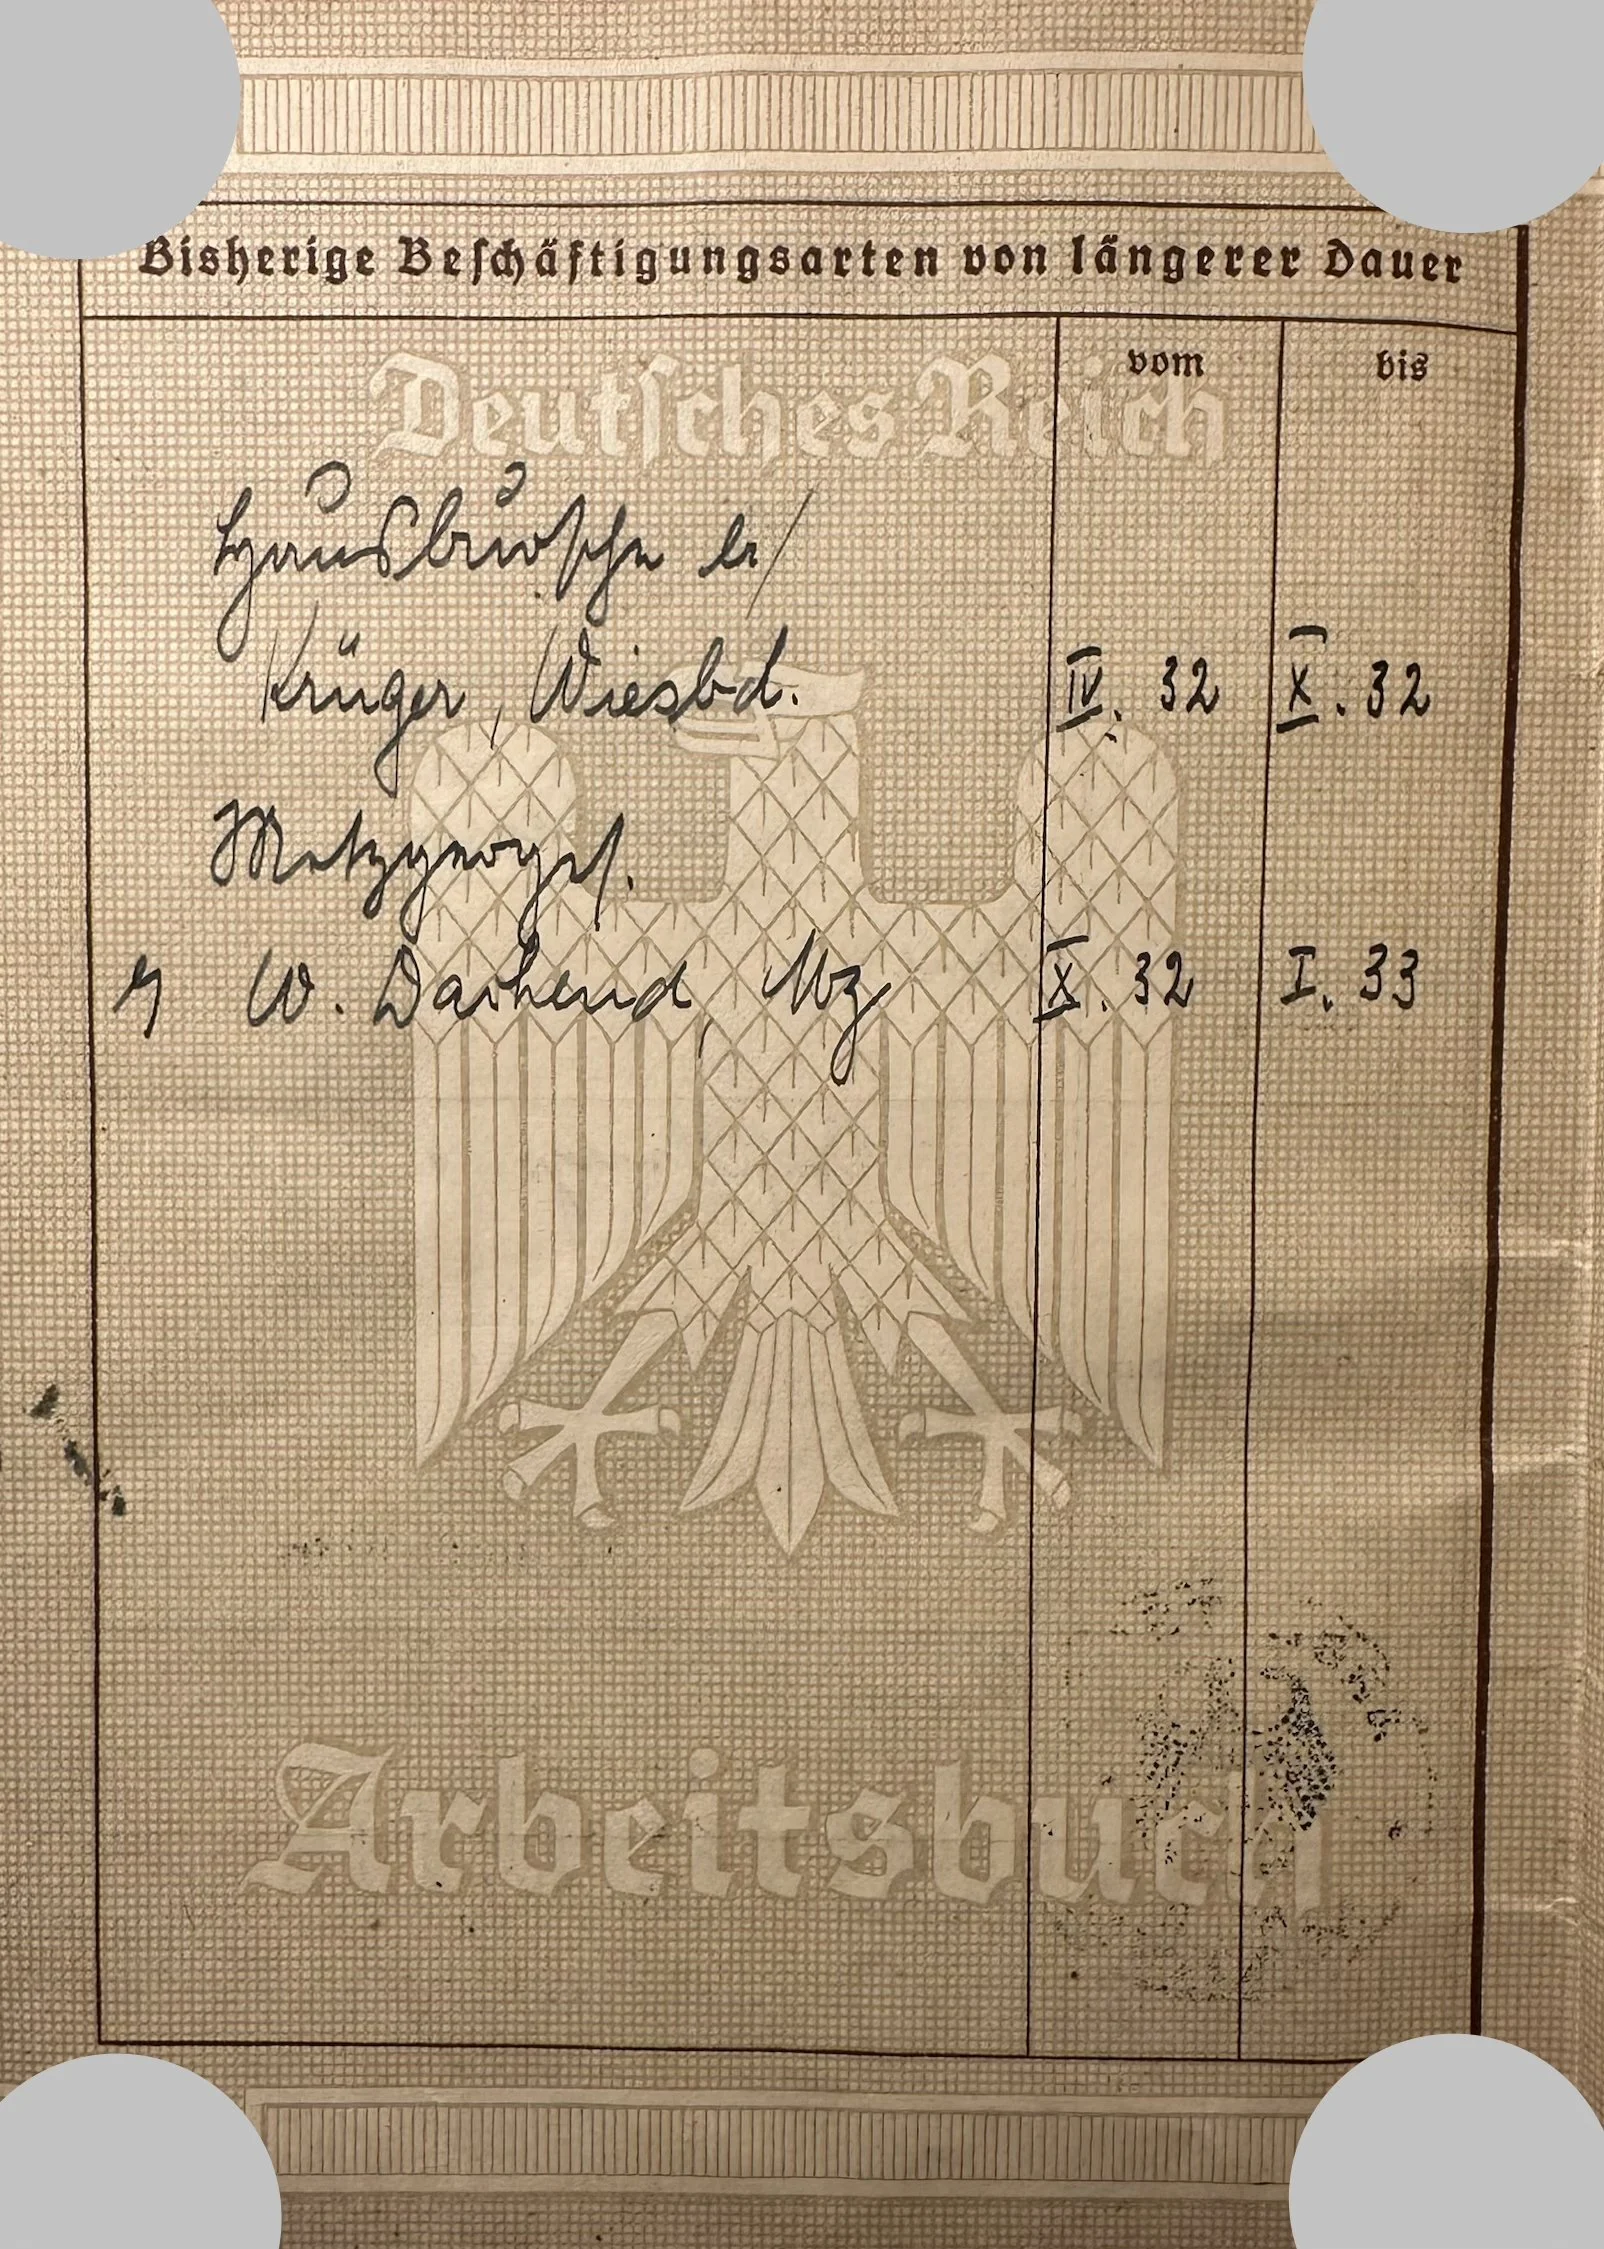 Bisherige Beschäftigungsarten von längerer Dauer
vom bis
Deutsches Reich
Hausbursche b/
Krüger, Wiesbd. IV. 32 X. 32
Metzgerges.
W. Dachend, Mz X. 32 I. 33
Arbeitsbuch